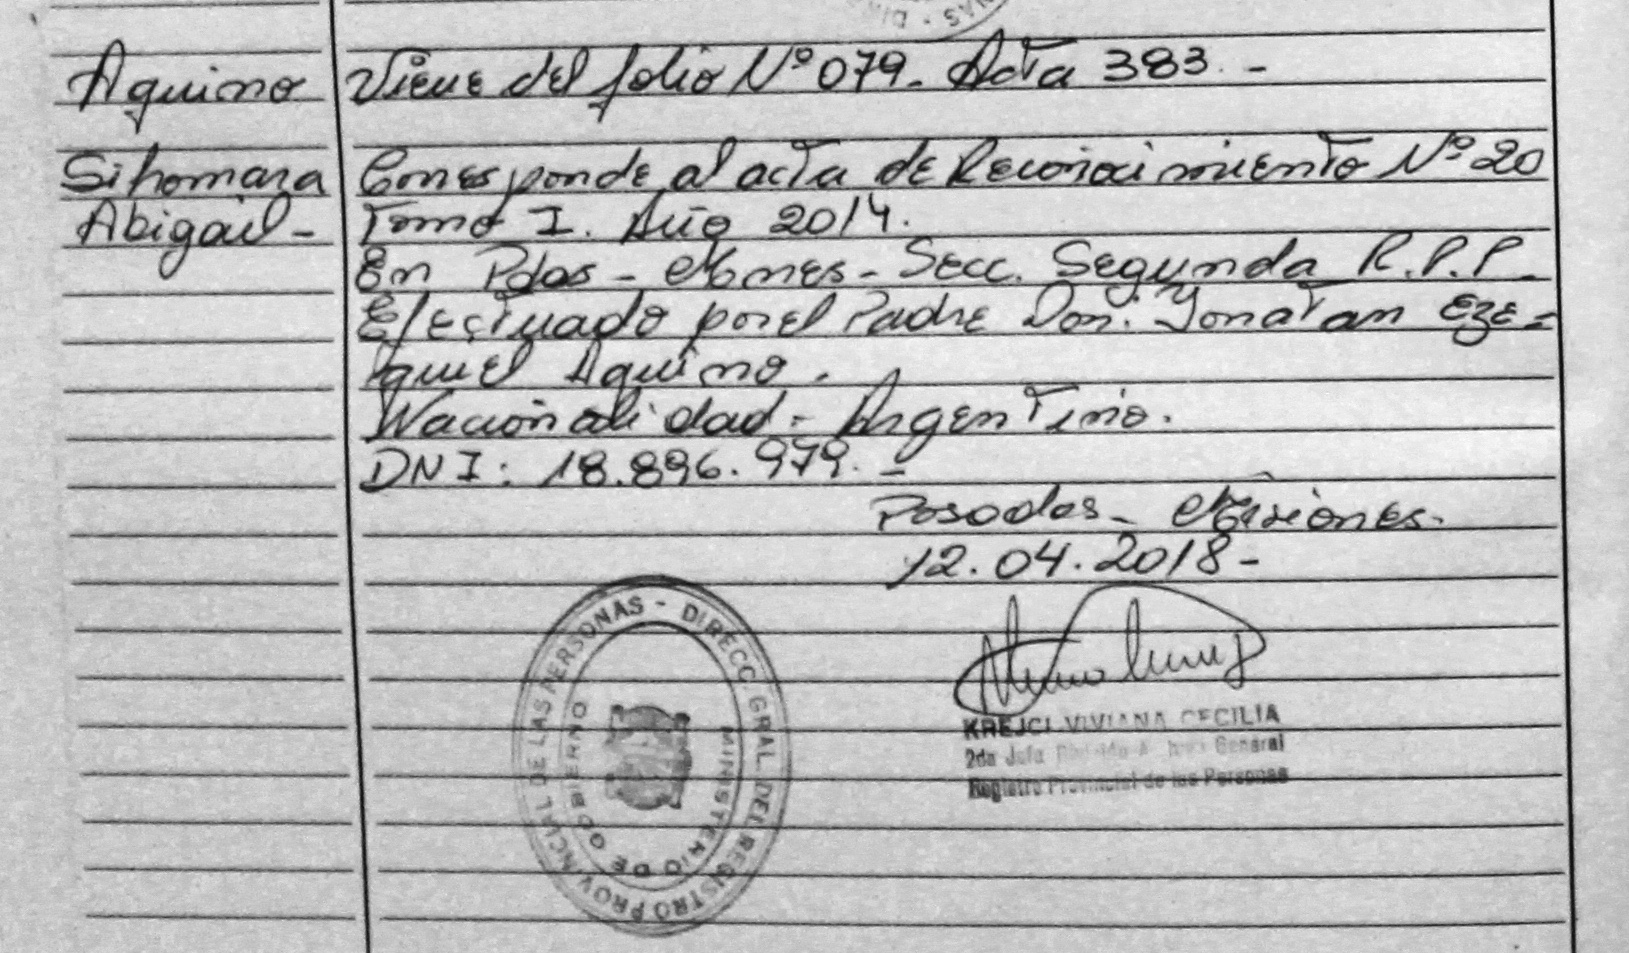 Aquino
Sihomara
Abigail -
Viene del folio Nº 079. Acta 383. -
Corresponde al acta de Reconocimiento Nº 20
Tomo I. Año 2014.
En Pdas - Mnes - Secc. Segunda R.P.P.
Efectuado por el Padre Don. Jonatan Eze=
quiel Aquino.
Nacionalidad - Argentino.
DNI: 18.896.979. -
Posadas - Misiones.
12.04.2018 -
DIRECC. GRAL. DEL REGISTRO PROVINCIAL DE LAS PERSONAS -
MINISTERIO DE GOBIERNO
KREJCI VIVIANA CECILIA
2da Jefa General
Registro Provincial de las Personas